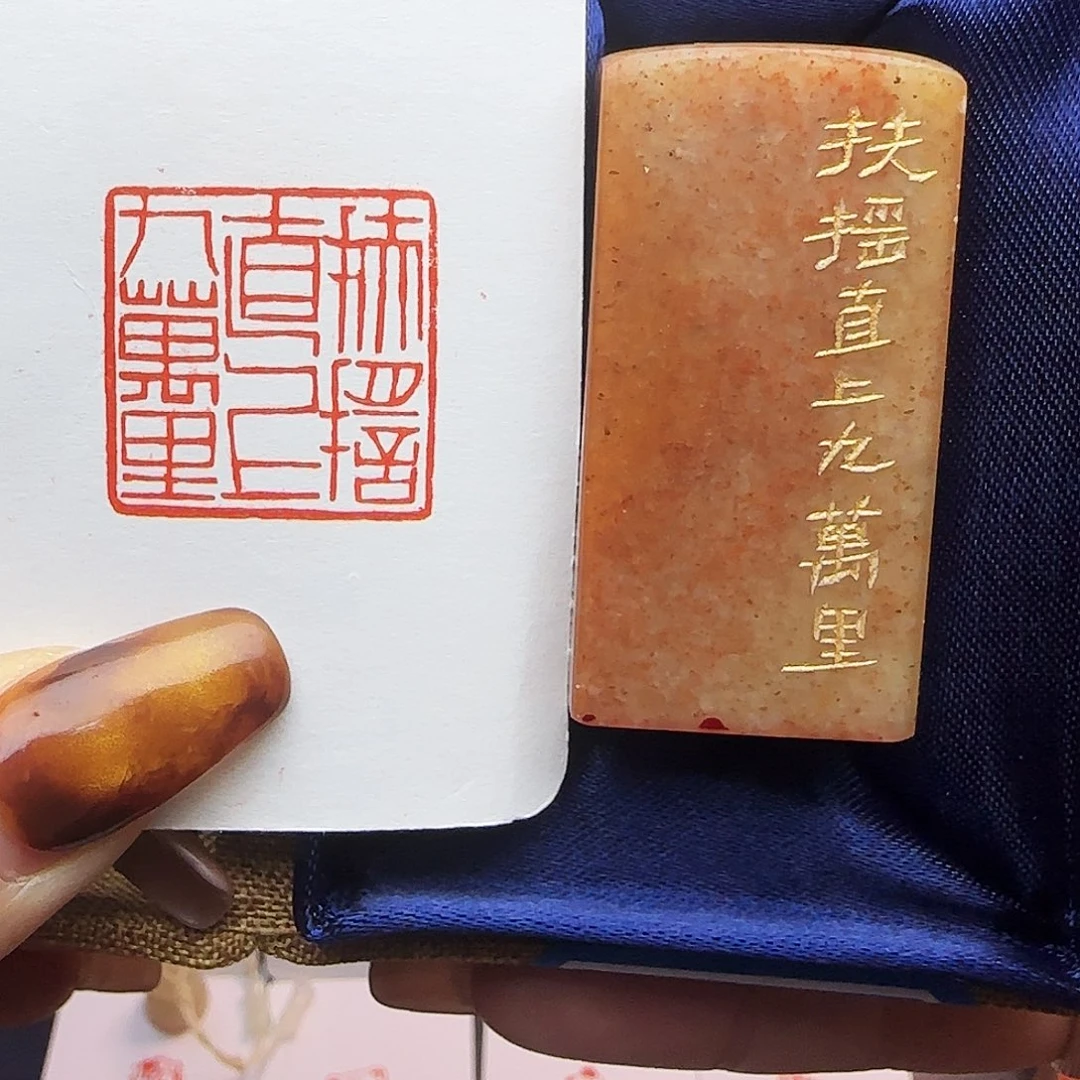 扶摇
直上
九萬里
扶摇直上九萬里